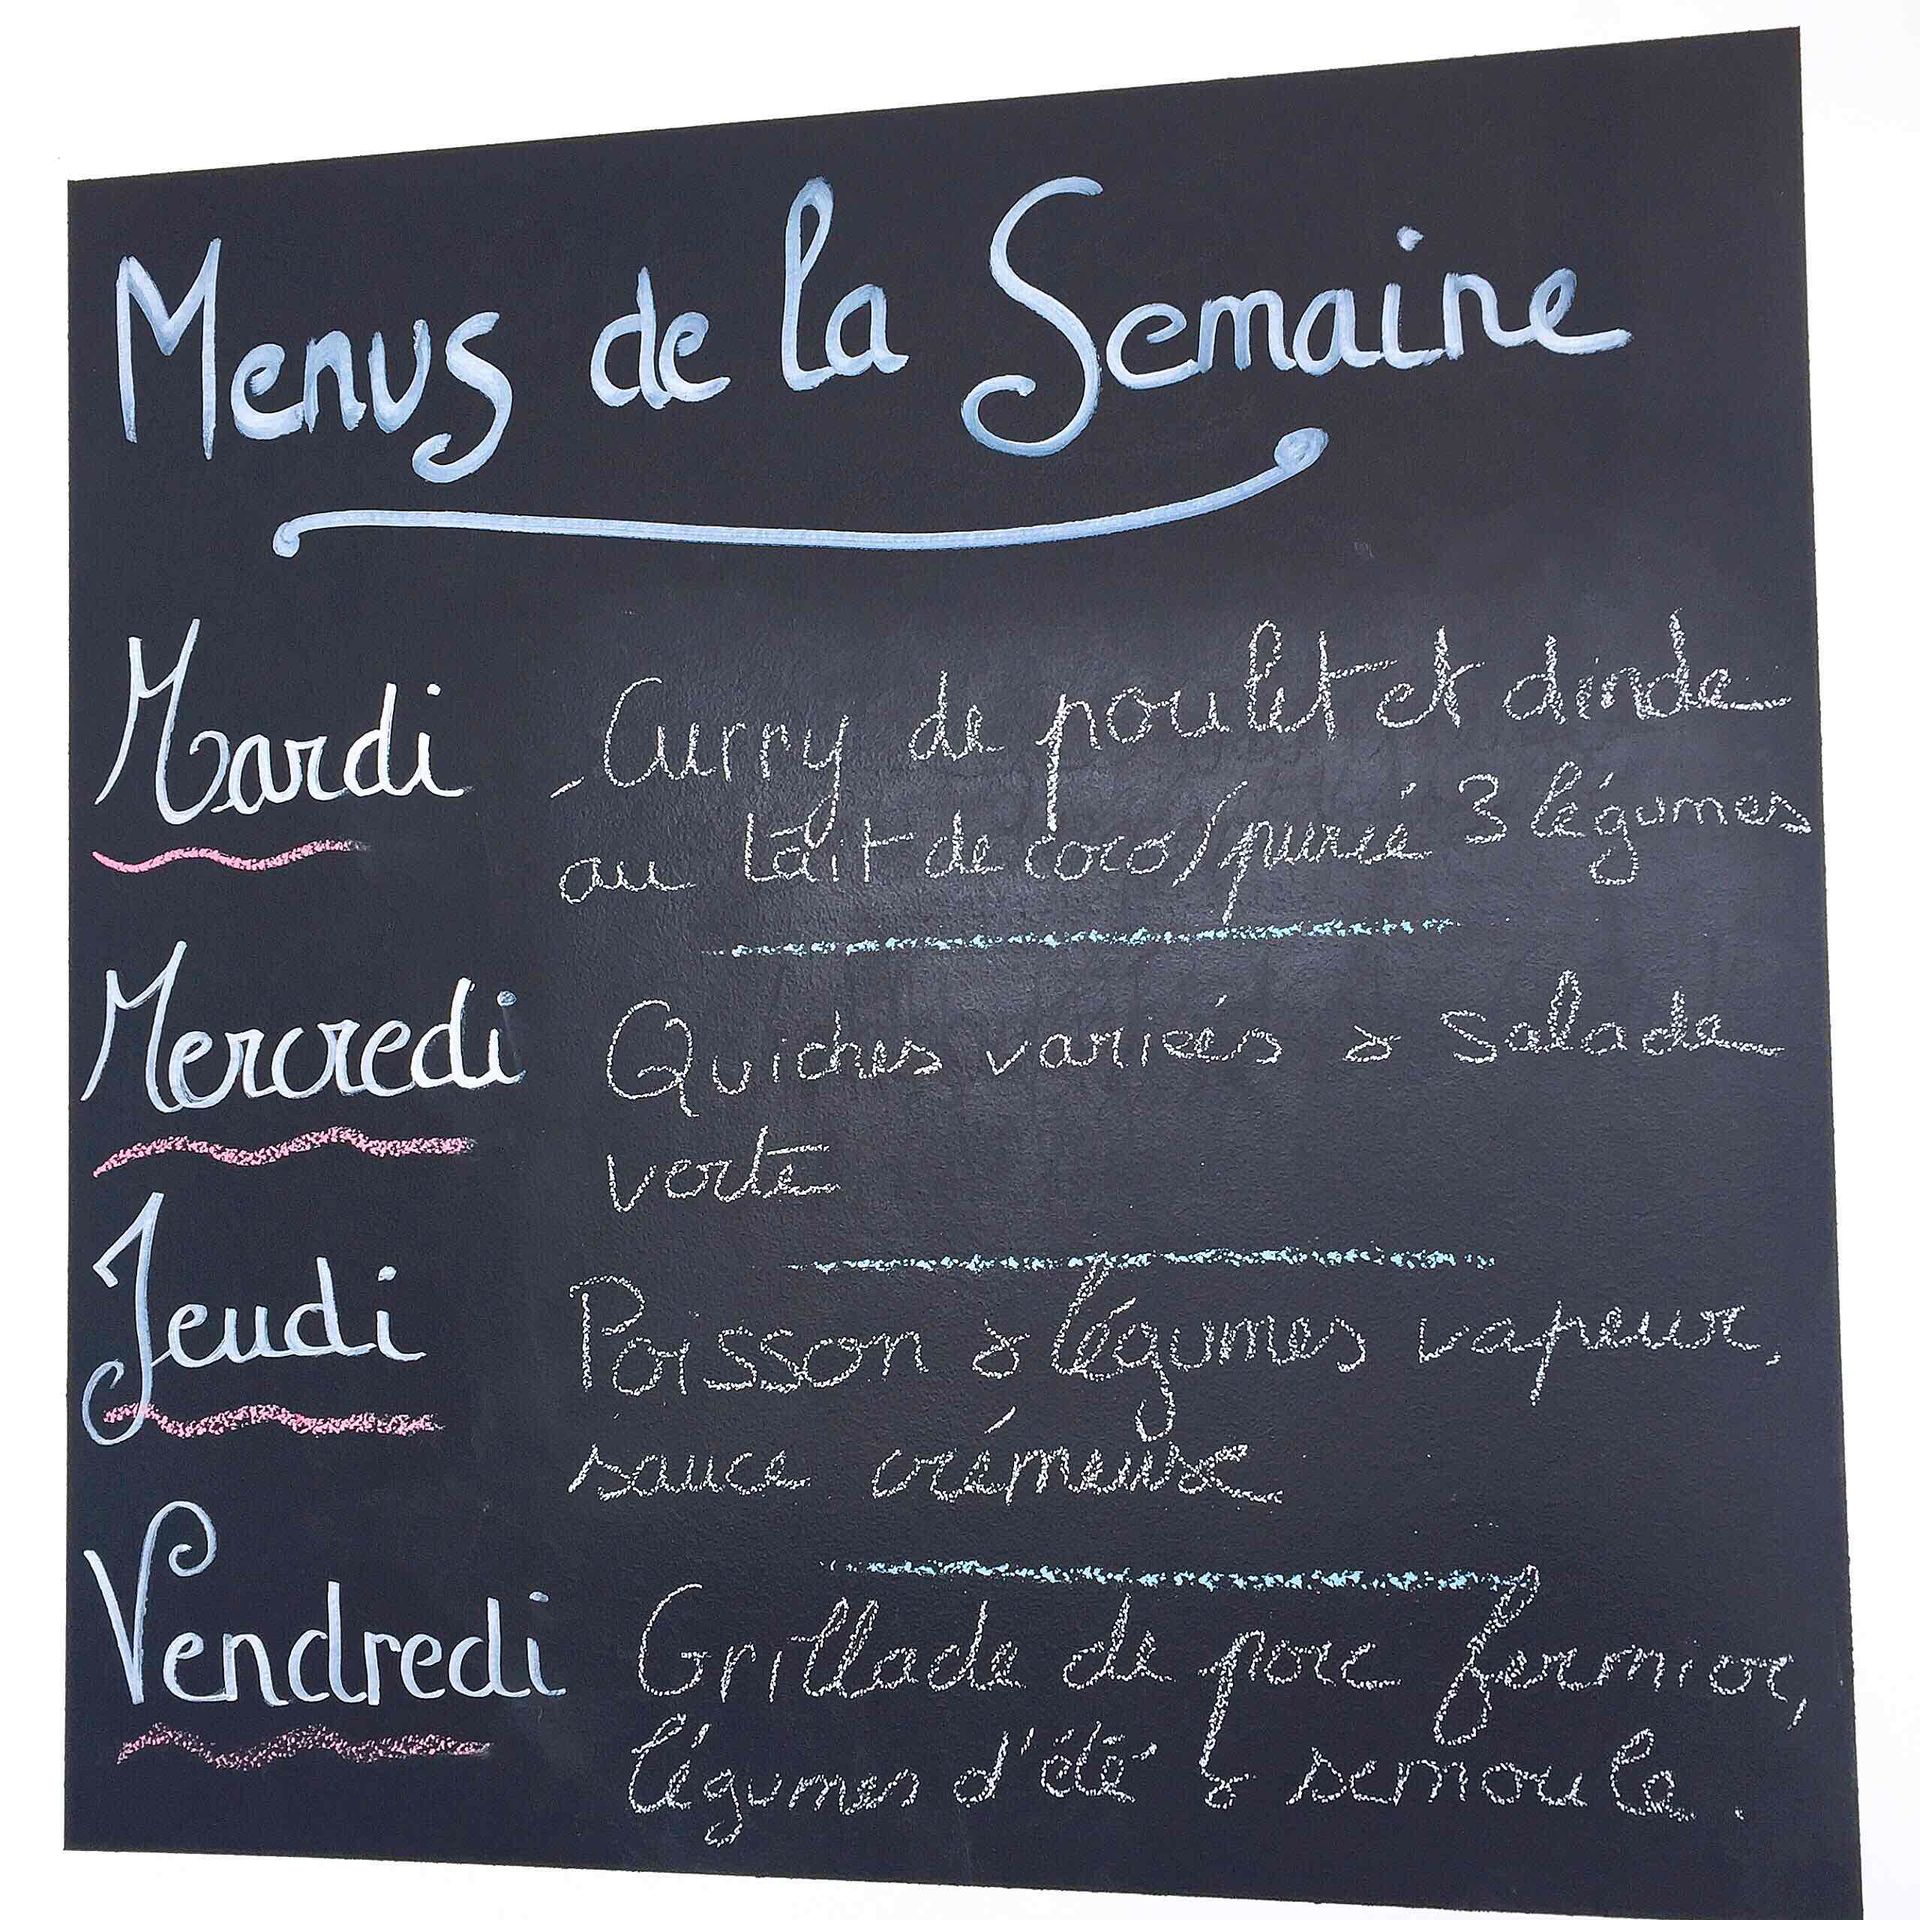 Menus de la Semaine
Mardi
- Curry de poulet et dinde
au lait de coco/purée 3 légumes
Mercredi
Quiches variées & salade
verte
Jeudi
Poisson & légumes vapeur,
sauce crémeuse
Vendredi
Grillade de porc fermier,
légumes d'été & semoule.